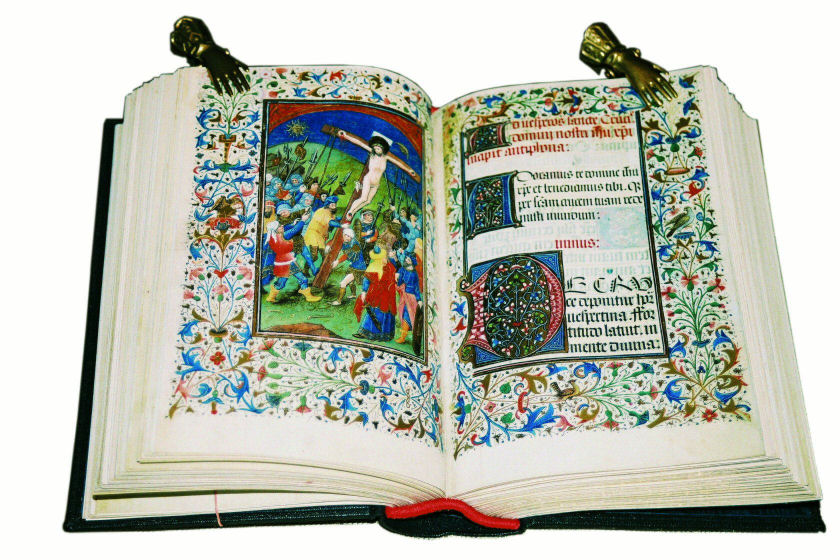 Ad uesperos sancte Cruc
domini nostri ihu xpi
incipit antiphona:
Adoramus te domine ihu
xpe et benedicimus tibi. Q
per scam crucem tuam rede
misti mundum:
DE CRV
ce deponitur hor
uespertina ffor
titudo latuit in
mente diuina: